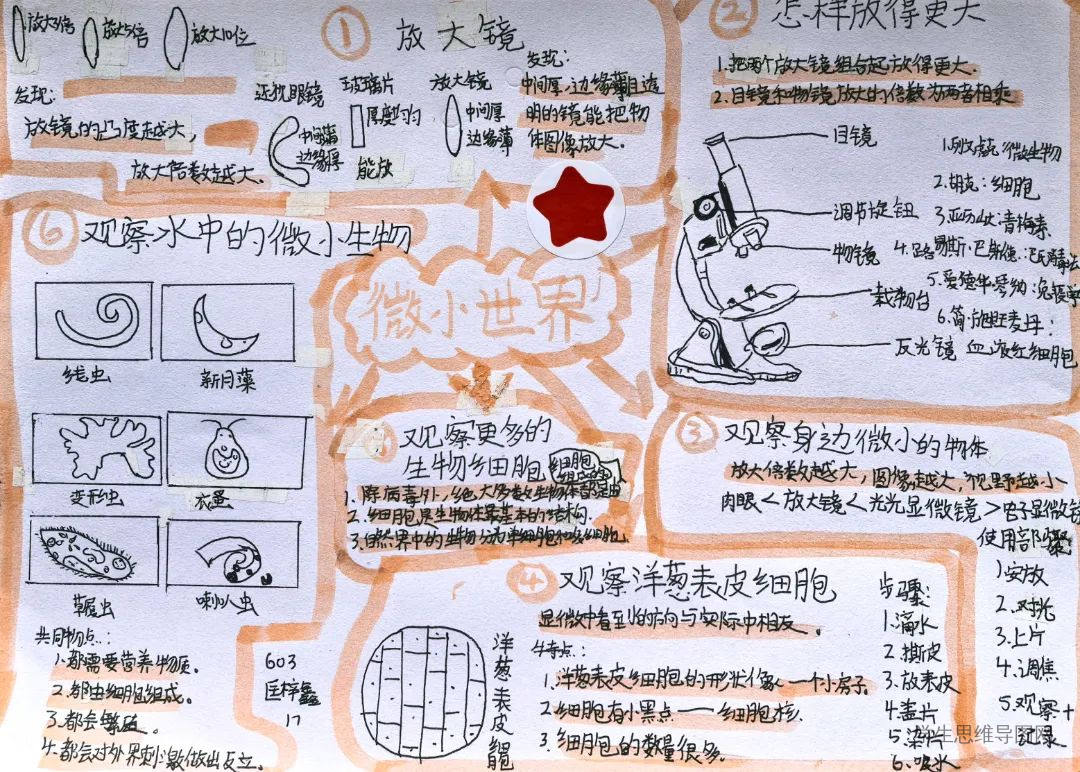 放大3倍
放大5倍
放大10位
① 放大镜
发现:
放镜的凸度越大,
放大倍数越大。
近视眼镜
中间薄
边缘厚
玻璃片
厚度均匀
能放
放大镜
中间厚
边缘薄
发现:
中间厚、边缘薄且透
明的镜能把物
体图像放大。
② 怎样放得更大
1.把两个放大镜组合起放得更大.
2.目镜和物镜放大的倍数为两者相乘
目镜
调节旋钮
物镜
载物台
反光镜
微生物
2.胡克:细胞
3.亚历山大:青梅素
5.爱德华·琴纳:免疫学
血液红细胞
微小世界
③ 观察身边微小的物体
放大倍数越大,图像越大,视野越小
肉眼<放大镜<光光显微镜>电子显微镜
使用部骤
1.安放
2.对光
3.上片
4.调焦
5.观察+
记录
④ 观察洋葱表皮细胞
显微中看到的方向与实际中相反。
特点:
1.洋葱表皮细胞的形状像一个小房子
2.细胞有小黑点——细胞核.
3.细胞的数量很多.
洋葱表皮
步骤:
1.滴水
2.撕皮
3.放表皮
4.盖片
5.染片
6.吸水
观察更多的
生物细胞
细胞
1.除病毒外,绝大多数生物体都是由
2.细胞是生物体最基本的结构.
3.自然界中的生物分为单细胞和多细胞
⑥ 观察水中的微小生物
线虫
新月藻
变形虫
衣蚤
草履虫
喇叭虫
共同物点:
1.都需要营养物质。
2.都由细胞组成。
3.都会
4.都会对外界刺激做出反应。
603
匡梓鑫
17
学生思维导图网